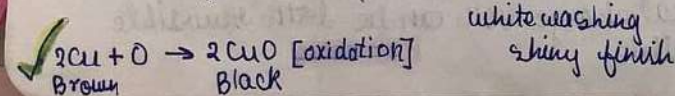 white washing
2Cu + O → 2CuO [oxidation] shiny finish
Brown Black